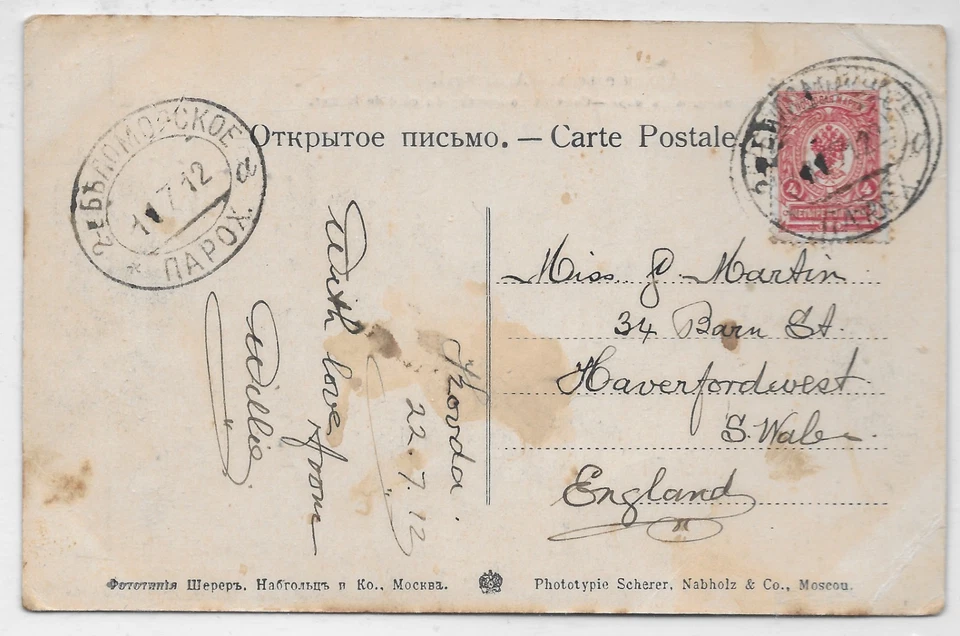 Открытое письмо. — Carte Postale.
2-Е БѢЛОМОРСКОЕ а
11 7 12
* ПАРОХ.
4 4
Kovda
22.7.12
With love from
Willie
Miss J. Martin
34 Barn St.
Haverfordwest
S. Wales
England
Фототипія Шереръ, Набгольцъ и Ко., Москва.
Phototypie Scherer, Nabholz & Co., Moscou.